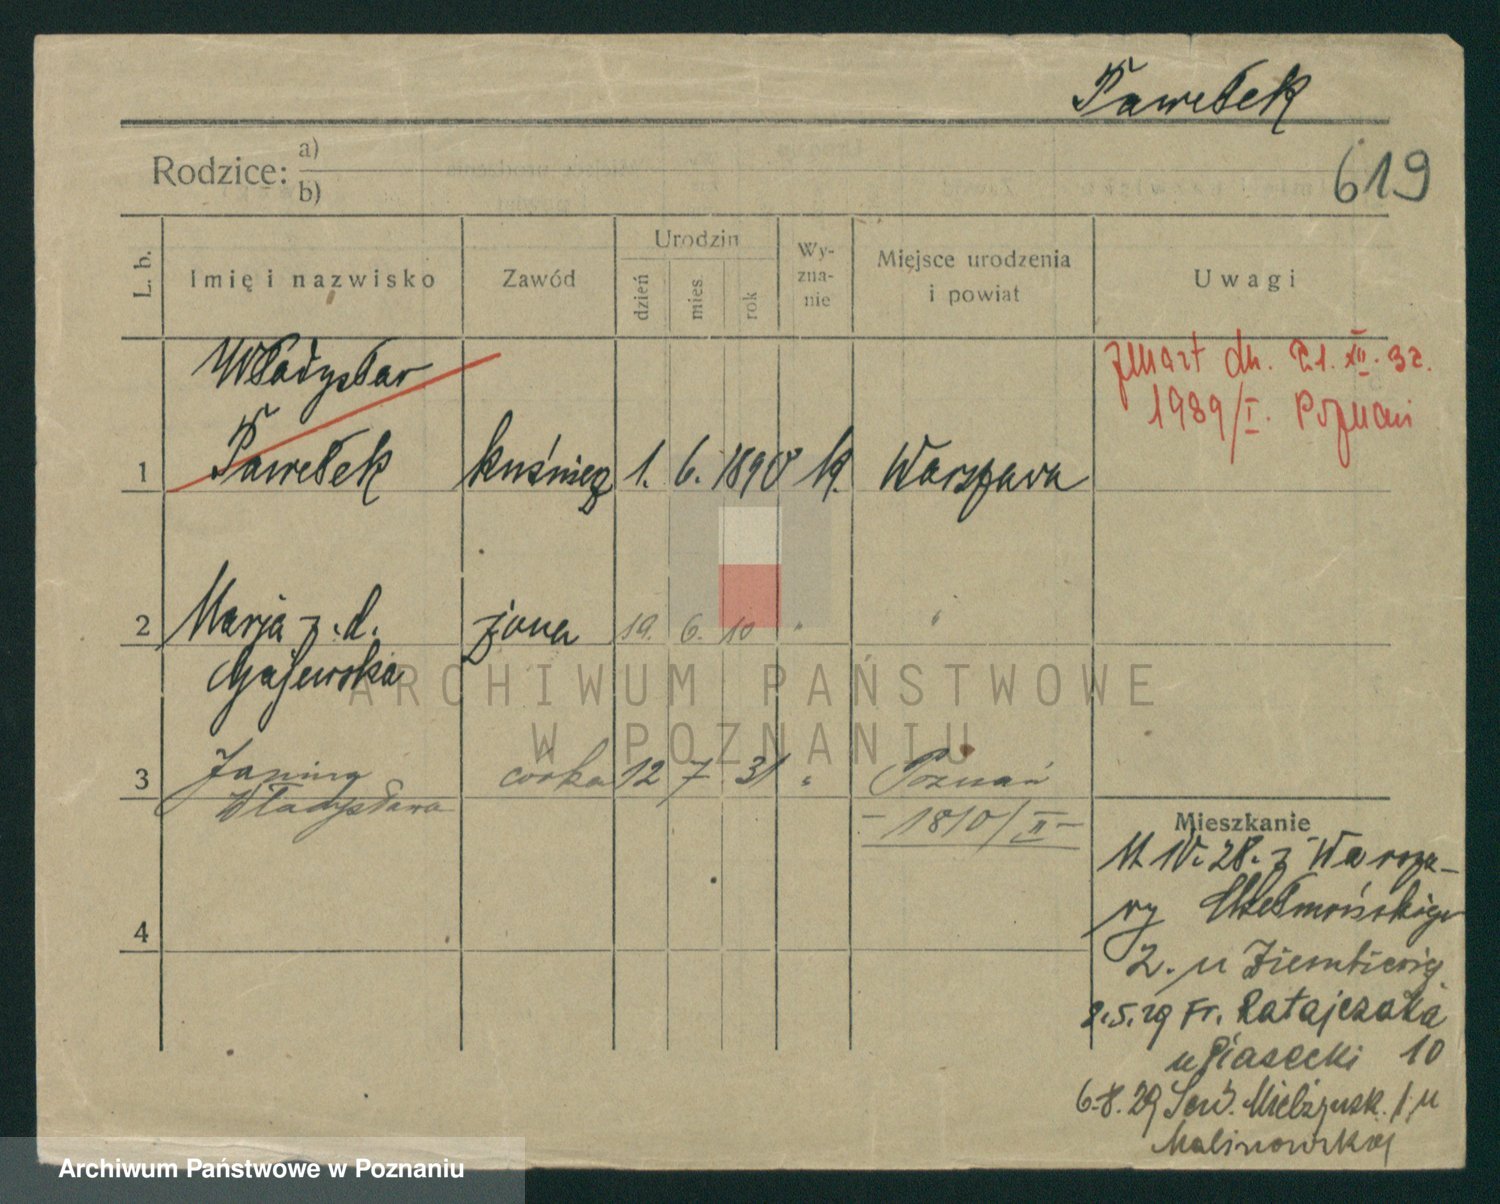 Pawełek
619
Rodzice: a)
b)
L. b.
Imię i nazwisko
Zawód
Urodzin
dzień
mies.
rok
Wy-
zna-
nie
Miejsce urodzenia
i powiat
Uwagi
Władysław
Pawełek
1
kuśnierz
1. 6. 1890
Warszawa
zmarł dn. 21. XII. 32.
1989/I. Poznań
2
Marja z. d.
Gajewska
żona
19. 6. 10
"
"
3
Janina
Władysława
córka
12 7 31
"
Poznań
- 1810/II -
4
Mieszkanie
11. IV. 28. z Warsza-
wy Chełmońskiego
2. u Ziembiewicz
2.5.29 Fr. Ratajczaka
u Piasecki 10
6.8.29 Sew. Mielżyńsk. 1 u
Malinowskiej
ARCHIWUM PAŃSTWOWE
W POZNANIU
Archiwum Państwowe w Poznaniu